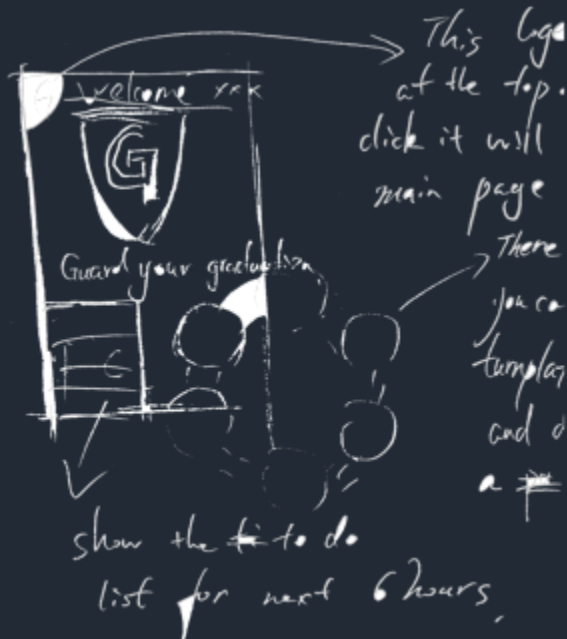 This
at the top.
click it will
main page
G Welcome xxx
G
Guard your graduation
There
you
and
a
show the to do
list for next 6 hours.